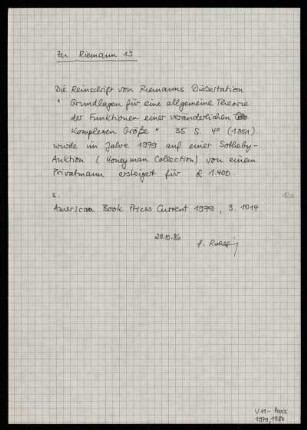 Zu Riemann 13
Die Reinschrift von Riemanns Dissertation
" Grundlagen für eine allgemeine Theorie
der Funktionen einer veränderlichen
komplexen Größe " 35 S. 4° (1851)
wurde im Jahre 1979 auf einer Sotheby-
Auktion (Honeyman Collection) von einem
Privatmann ersteigert für £ 1.400.
s.
American Book Prices Current 1979, S. 1014
29.10.86